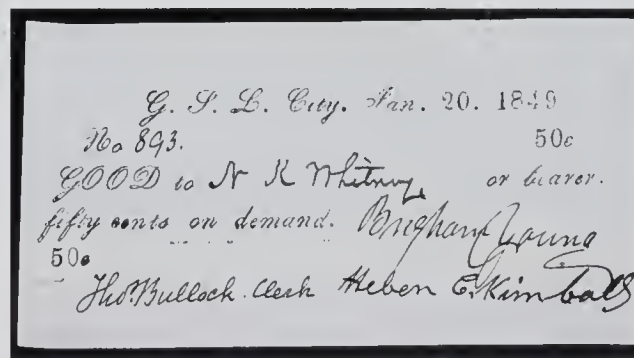 G. S. L. City. Jan. 20. 1849
No 893. 50c
GOOD to N K Whitney or bearer.
fifty cents on demand. Brigham Young
50c
Tho.s Bullock. Clerk Heber C. Kimball